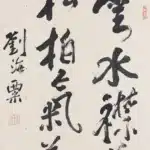 雲水襟
松柏氣
劉海粟